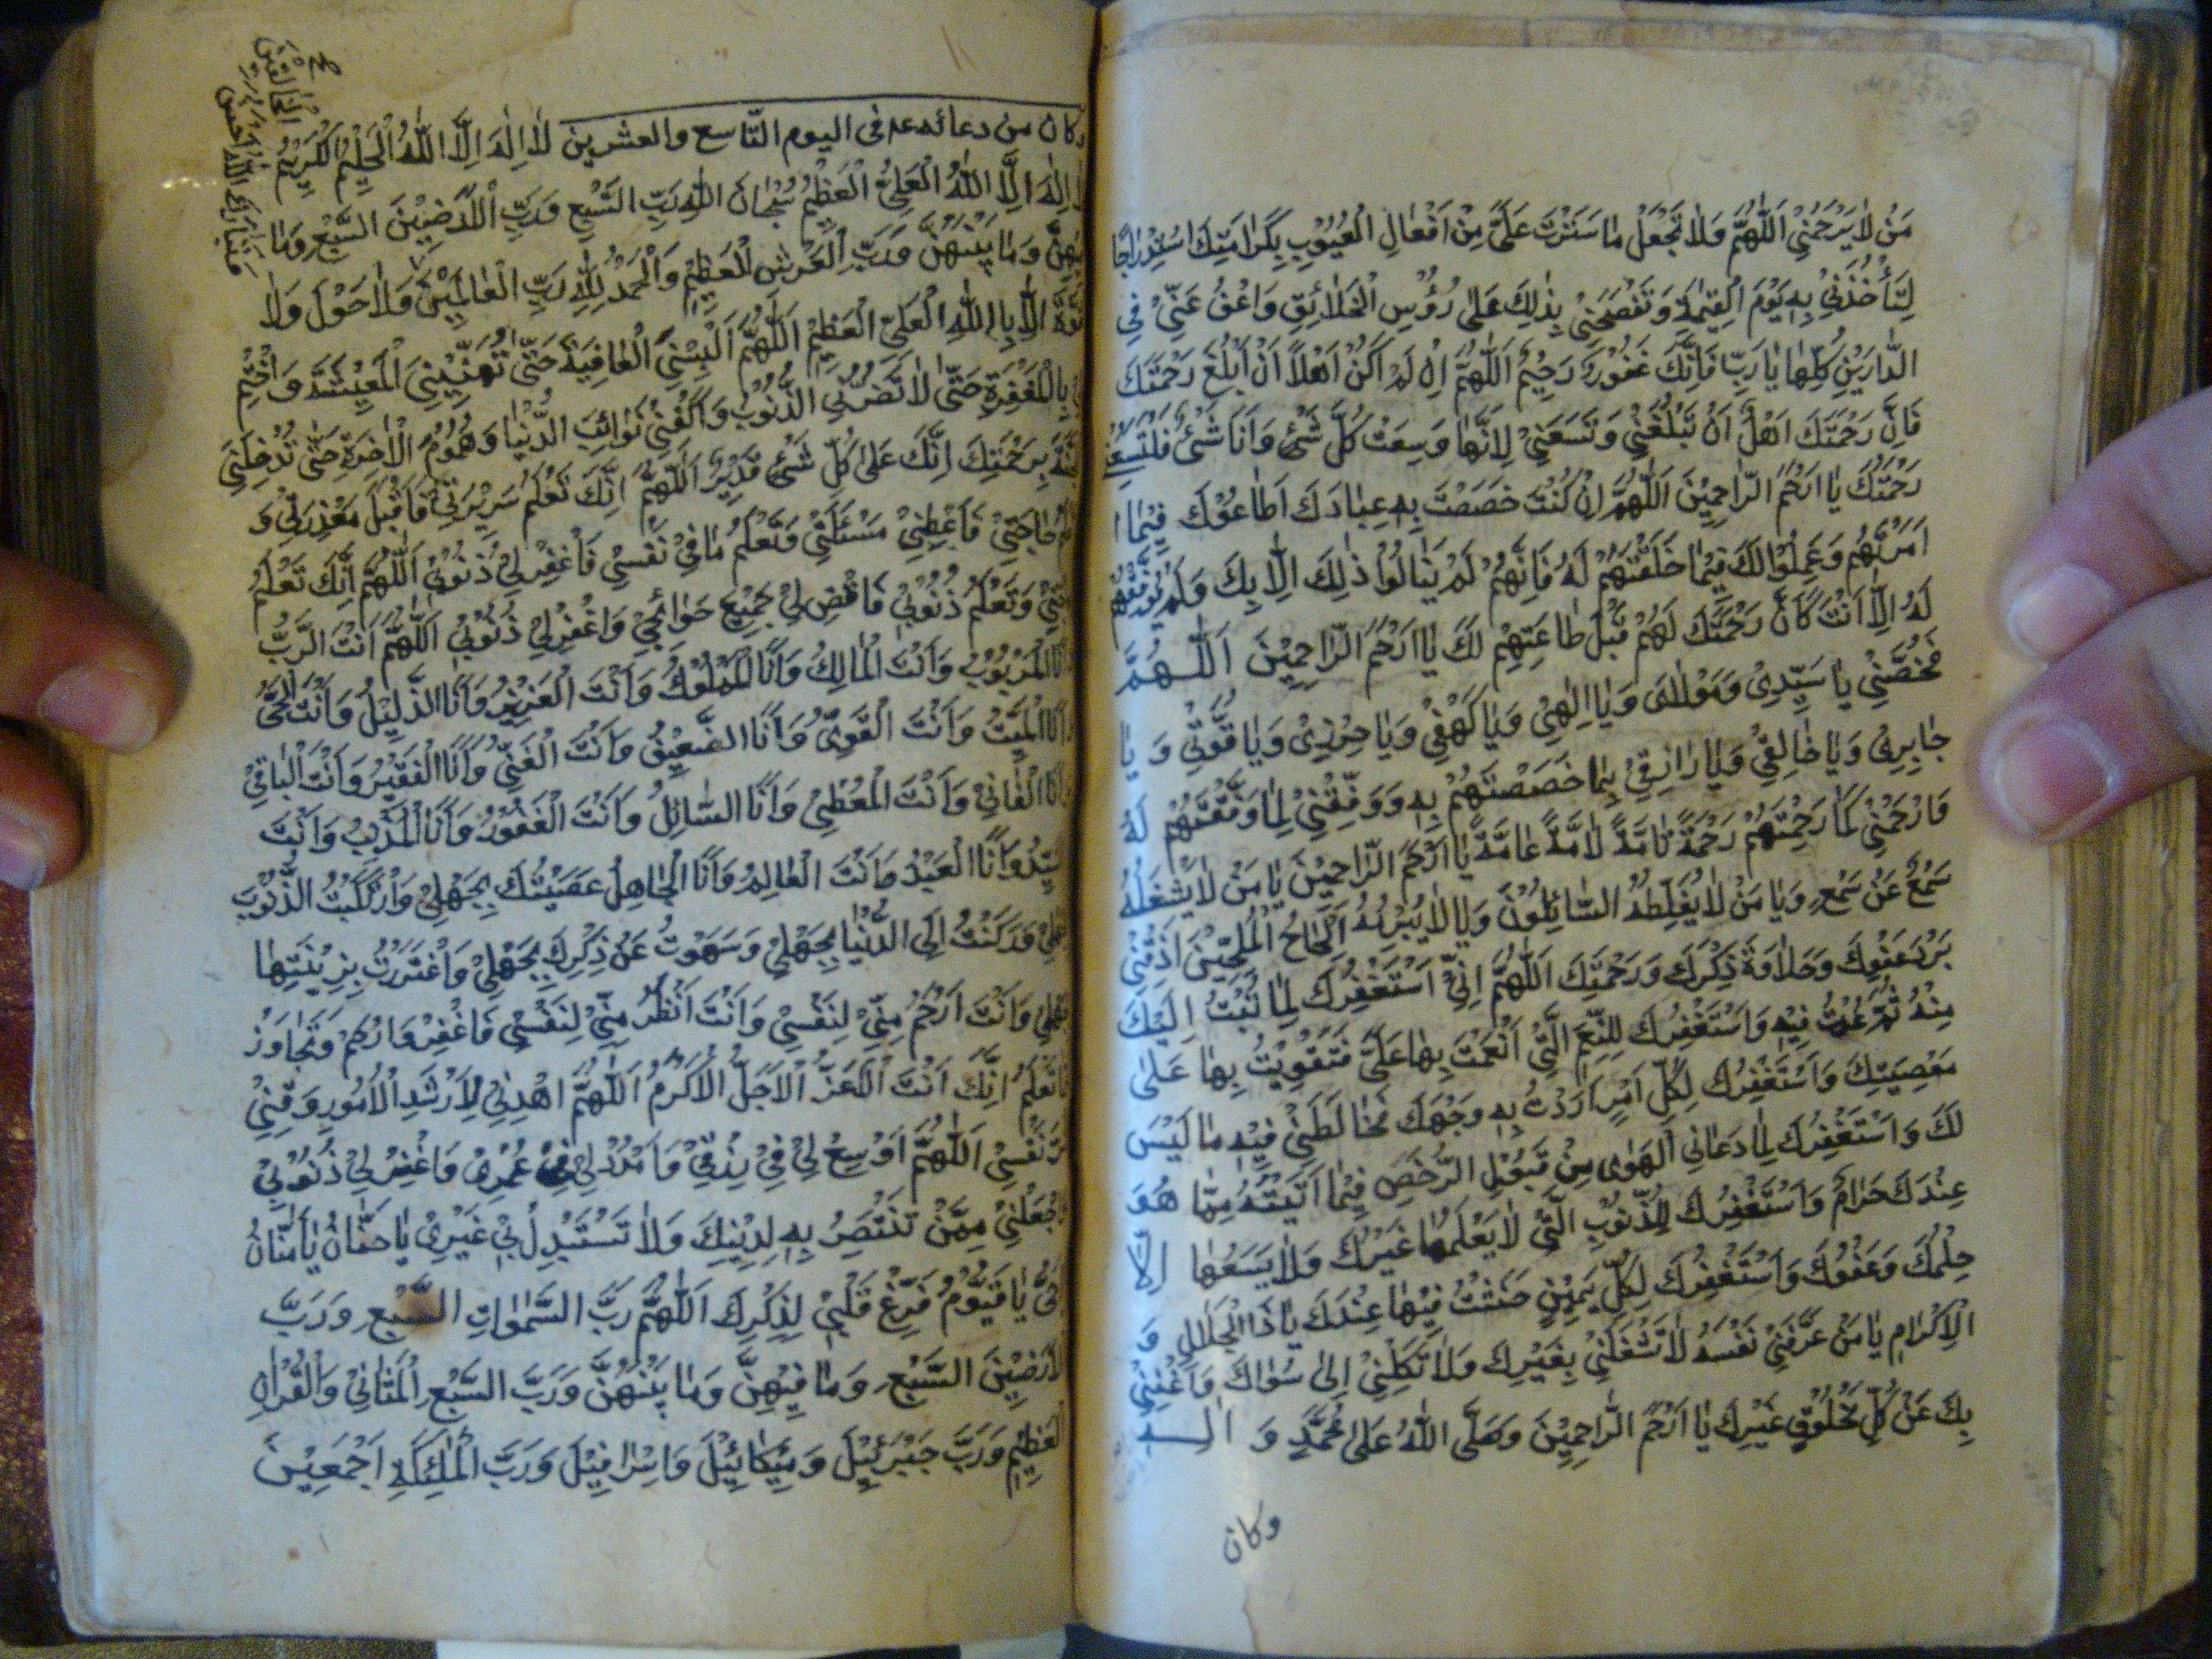 مَنْ لٰا يَرْحَمُنِيْ اَللّٰهُمَّ وَلٰا تَجْعَلْ مٰا سَتَرْتَ عَلَىَّ مِنْ اَفْعٰالِ الْعُيُوْبِ بِكَرٰامَتِكَ اسْتِدْرٰاجًا
لِتَأْخُذَنِيْ بِهٖ يَوْمَ الْقِيٰمَةِ وَتَفْضَحَنِيْ بِذٰلِكَ عَلىٰ رُؤُسِ الْخَلٰائِقِ وَاعْفُ عَنِّيْ فِي
الدّٰارَيْنِ كُلِّهٰا يٰا رَبِّ فَاِنَّكَ غَفُوْرٌ رَحِيْمٌ اَللّٰهُمَّ اِنْ لَمْ اَكُنْ اَهْلًا اَنْ اَبْلُغَ رَحْمَتَكَ
فَاِنَّ رَحْمَتَكَ اَهْلٌ اَنْ تَبْلُغَنِيْ وَتَسَعَنِيْ لِاَنَّهٰا وَسِعَتْ كُلَّ شَيْءٍ وَاَنَا شَيْءٌ فَلْتَسَعْنِيْ
رَحْمَتُكَ يٰا اَرْحَمَ الرّٰاحِمِيْنَ اَللّٰهُمَّ اِنْ كُنْتَ خَصَصْتَ بِهٖ عِبٰادَكَ اَطٰاعُوْكَ فِيْمٰا
اَمَرْتَهُمْ وَعَمِلُوْا لَكَ فِيْمٰا خَلَقْتَهُمْ لَهُ فَاِنَّهُمْ لَمْ يَنٰالُوْا ذٰلِكَ اِلّٰا بِكَ وَلَمْ يُوَفِّقْهُمْ
لَهُ اِلّٰا اَنْتَ كٰانَ رَحْمَتُكَ لَهُمْ قَبْلَ طٰاعَتِهِمْ لَكَ يٰا اَرْحَمَ الرّٰاحِمِيْنَ اَللّٰهُمَّ
فَخُصَّنِيْ يٰا سَيِّدِيْ وَمَوْلٰايَ وَيٰا اِلٰهِيْ وَيٰا كَهْفِيْ وَيٰا حِرْزِيْ وَيٰا قُوَّتِيْ وَ يٰا
جٰابِرِيْ وَيٰا خٰالِقِيْ وَيٰا رٰازِقِيْ بِمٰا خَصَصْتَهُمْ بِهٖ وَوَفِّقْنِيْ لِمٰا وَفَّقْتَهُمْ لَهُ
وَارْحَمْنِيْ كَمٰا رَحِمْتَهُمْ رَحْمَةً تٰامَّةً لٰامَّةً عٰامَّةً يٰا اَرْحَمَ الرّٰاحِمِيْنَ يٰا مَنْ لٰا يَشْغَلُهُ
سَمْعٌ عَنْ سَمْعٍ وَيٰا مَنْ لٰا يُغَلِّطُهُ السّٰائِلُوْنَ وَيٰا لٰا يُبْرِمُهُ اِلْحٰاحُ الْمُلِحِّيْنَ اَذِقْنِيْ
بَرْدَ عَفْوِكَ وَحَلٰاوَةَ ذِكْرِكَ وَرَحْمَتِكَ اَللّٰهُمَّ اِنِّيْ اَسْتَغْفِرُكَ لِمٰا تُبْتُ اِلَيْكَ
مِنْهُ ثُمَّ عُدْتُ فِيْهِ وَاَسْتَغْفِرُكَ لِلنِّعَمِ الَّتِيْ اَنْعَمْتَ بِهٰا عَلَيَّ فَتَقَوَّيْتُ بِهٰا عَلىٰ
مَعْصِيَتِكَ وَاَسْتَغْفِرُكَ لِكُلِّ اَمْرٍ اَرَدْتُ بِهٖ وَجْهَكَ فَخٰالَطَنِيْ فِيْهِ مٰا لَيْسَ
لَكَ وَاَسْتَغْفِرُكَ لِمٰا دَعٰانِي الْهَوىٰ مِنْ قَبُوْلِ الرُّخَصِ فِيْمٰا اَتَيْتُهُ مِمّٰا هُوَ
عِنْدَكَ حَرٰامٌ وَاَسْتَغْفِرُكَ لِلذُّنُوْبِ الَّتِيْ لٰا يَعْلَمُهٰا غَيْرُكَ وَلٰا يَسَعُهٰا اِلّٰا
حِلْمُكَ وَعَفْوُكَ وَاَسْتَغْفِرُكَ لِكُلِّ يَمِيْنٍ حَنَثْتُ فِيْهٰا عِنْدَكَ يٰا ذَا الْجَلٰالِ وَ
الْاِكْرٰامِ يٰا مَنْ عَرَّفَنِيْ نَفْسَهُ لٰا تَشْغَلْنِيْ بِغَيْرِكَ وَلٰا تَكِلْنِيْ اِلىٰ سُوٰاكَ وَاَغْنِنِيْ
بِكَ عَنْ كُلِّ مَخْلُوْقٍ غَيْرِكَ يٰا اَرْحَمَ الرّٰاحِمِيْنَ وَصَلَّى اللّٰهُ عَلىٰ مُحَمَّدٍ وَ اٰلِهِ
وكان
وكان من دعائه ع م فى اليوم التّاسع والعشرين لٰا اِلٰهَ اِلَّا اللّٰهُ الْحَلِيْمُ الْكَرِيْمُ
اِلٰهَ اِلَّا اللّٰهُ الْعَلِيُّ الْعَظِيْمُ سُبْحٰانَ اللّٰهِ رَبِّ السَّبْعِ وَرَبِّ الْاَرَضِيْنَ السَّبْعِ وَمٰا
فِيْهِنَّ وَمٰا بَيْنَهُنَّ وَرَبِّ الْعَرْشِ الْعَظِيْمِ وَالْحَمْدُ لِلّٰهِ رَبِّ الْعٰالَمِيْنَ وَلٰا حَوْلَ وَلٰا
قُوَّةَ اِلّٰا بِاللّٰهِ الْعَلِيِّ الْعَظِيْمِ اَللّٰهُمَّ اَلْبِسْنِي الْعٰافِيَةَ حَتّٰى تُهَنِّيَنِي الْمَعِيْشَةَ وَاخْتِمْ
بِالْمَغْفِرَةِ حَتّٰى لٰا تَضُرَّنِي الذُّنُوْبُ وَاكْفِنِيْ نَوٰائِبَ الدُّنْيٰا وَهُمُوْمَ الْاٰخِرَةِ حَتّٰى تُدْخِلَنِي
بِرَحْمَتِكَ اِنَّكَ عَلىٰ كُلِّ شَيْءٍ قَدِيْرٌ اَللّٰهُمَّ اِنَّكَ تَعْلَمُ سَرِيْرَتِيْ فَاقْبَلْ مَعْذِرَتِيْ وَ
حٰاجَتِيْ فَاَعْطِنِيْ مَسْئَلَتِيْ وَتَعْلَمُ مٰا فِيْ نَفْسِيْ فَاغْفِرْ لِيْ ذُنُوْبِيْ اَللّٰهُمَّ اِنَّكَ تَعْلَمُ
وَتَعْلَمُ ذُنُوْبِيْ فَاقْضِ لِيْ جَمِيْعَ حَوٰائِجِيْ وَاغْفِرْ لِيْ ذُنُوْبِيْ اَللّٰهُمَّ اَنْتَ الرَّبُّ
اَنَا الْمَرْبُوْبُ وَاَنْتَ الْمٰالِكُ وَاَنَا الْمَمْلُوْكُ وَاَنْتَ الْعَزِيْزُ وَاَنَا الذَّلِيْلُ وَاَنْتَ الْحَيُّ
اَنَا الْمَيِّتُ وَاَنْتَ الْقَوِيُّ وَاَنَا الضَّعِيْفُ وَاَنْتَ الْغَنِيُّ وَاَنَا الْفَقِيْرُ وَاَنْتَ الْبٰاقِيْ
اَنَا الْفٰانِيْ وَاَنْتَ الْمُعْطِيْ وَاَنَا السّٰائِلُ وَاَنْتَ الْغَفُوْرُ وَاَنَا الْمُذْنِبُ وَاَنْتَ
السَّيِّدُ وَاَنَا الْعَبْدُ وَاَنْتَ الْعٰالِمُ وَاَنَا الْجٰاهِلُ عَصَيْتُكَ بِجَهْلِيْ وَارْتَكَبْتُ الذُّنُوْبَ
وَرَكَنْتُ اِلَى الدُّنْيٰا بِجَهْلِيْ وَسَهَوْتُ عَنْ ذِكْرِكَ بِجَهْلِيْ وَاغْتَرَرْتُ بِزِيْنَتِهٰا
بِجَهْلِيْ وَاَنْتَ اَرْحَمُ مِنِّيْ لِنَفْسِيْ وَاَنْتَ اَنْظَرُ مِنِّيْ لِنَفْسِيْ فَاغْفِرْ وَارْحَمْ وَتَجٰاوَزْ
تَعْلَمُ اِنَّكَ اَنْتَ الْاَعَزُّ الْاَجَلُّ الْاَكْرَمُ اَللّٰهُمَّ اهْدِنِيْ لِاَرْشَدِ الْاُمُوْرِ وَقِنِيْ
شَرَّ نَفْسِيْ اَللّٰهُمَّ اَوْسِعْ لِيْ فِيْ رِزْقِيْ وَامْدُدْ لِيْ فِيْ عُمْرِيْ وَاغْفِرْ لِيْ ذُنُوْبِيْ
وَاجْعَلْنِيْ مِمَّنْ تَنْتَصِرُ بِهٖ لِدِيْنِكَ وَلٰا تَسْتَبْدِلْ بِيْ غَيْرِيْ يٰا حَنّٰانُ يٰا مَنّٰانُ
حَيُّ يٰا قَيُّوْمُ فَرِّغْ قَلْبِيْ لِذِكْرِكَ اَللّٰهُمَّ رَبَّ السَّمٰوٰاتِ السَّبْعِ وَرَبَّ
الْاَرَضِيْنَ السَّبْعِ وَمٰا فِيْهِنَّ وَمٰا بَيْنَهُنَّ وَرَبَّ السَّبْعِ الْمَثٰانِيْ وَالْقُرْاٰنِ
الْعَظِيْمِ وَرَبَّ جَبْرَئِيْلَ وَمِيْكٰائِيْلَ وَاِسْرٰافِيْلَ وَرَبَّ الْمَلٰئِكَةِ اَجْمَعِيْنَ
فَتَبٰارَكَ اللّٰهُ اَحْسَنُ
الْخٰالِقِيْنَ